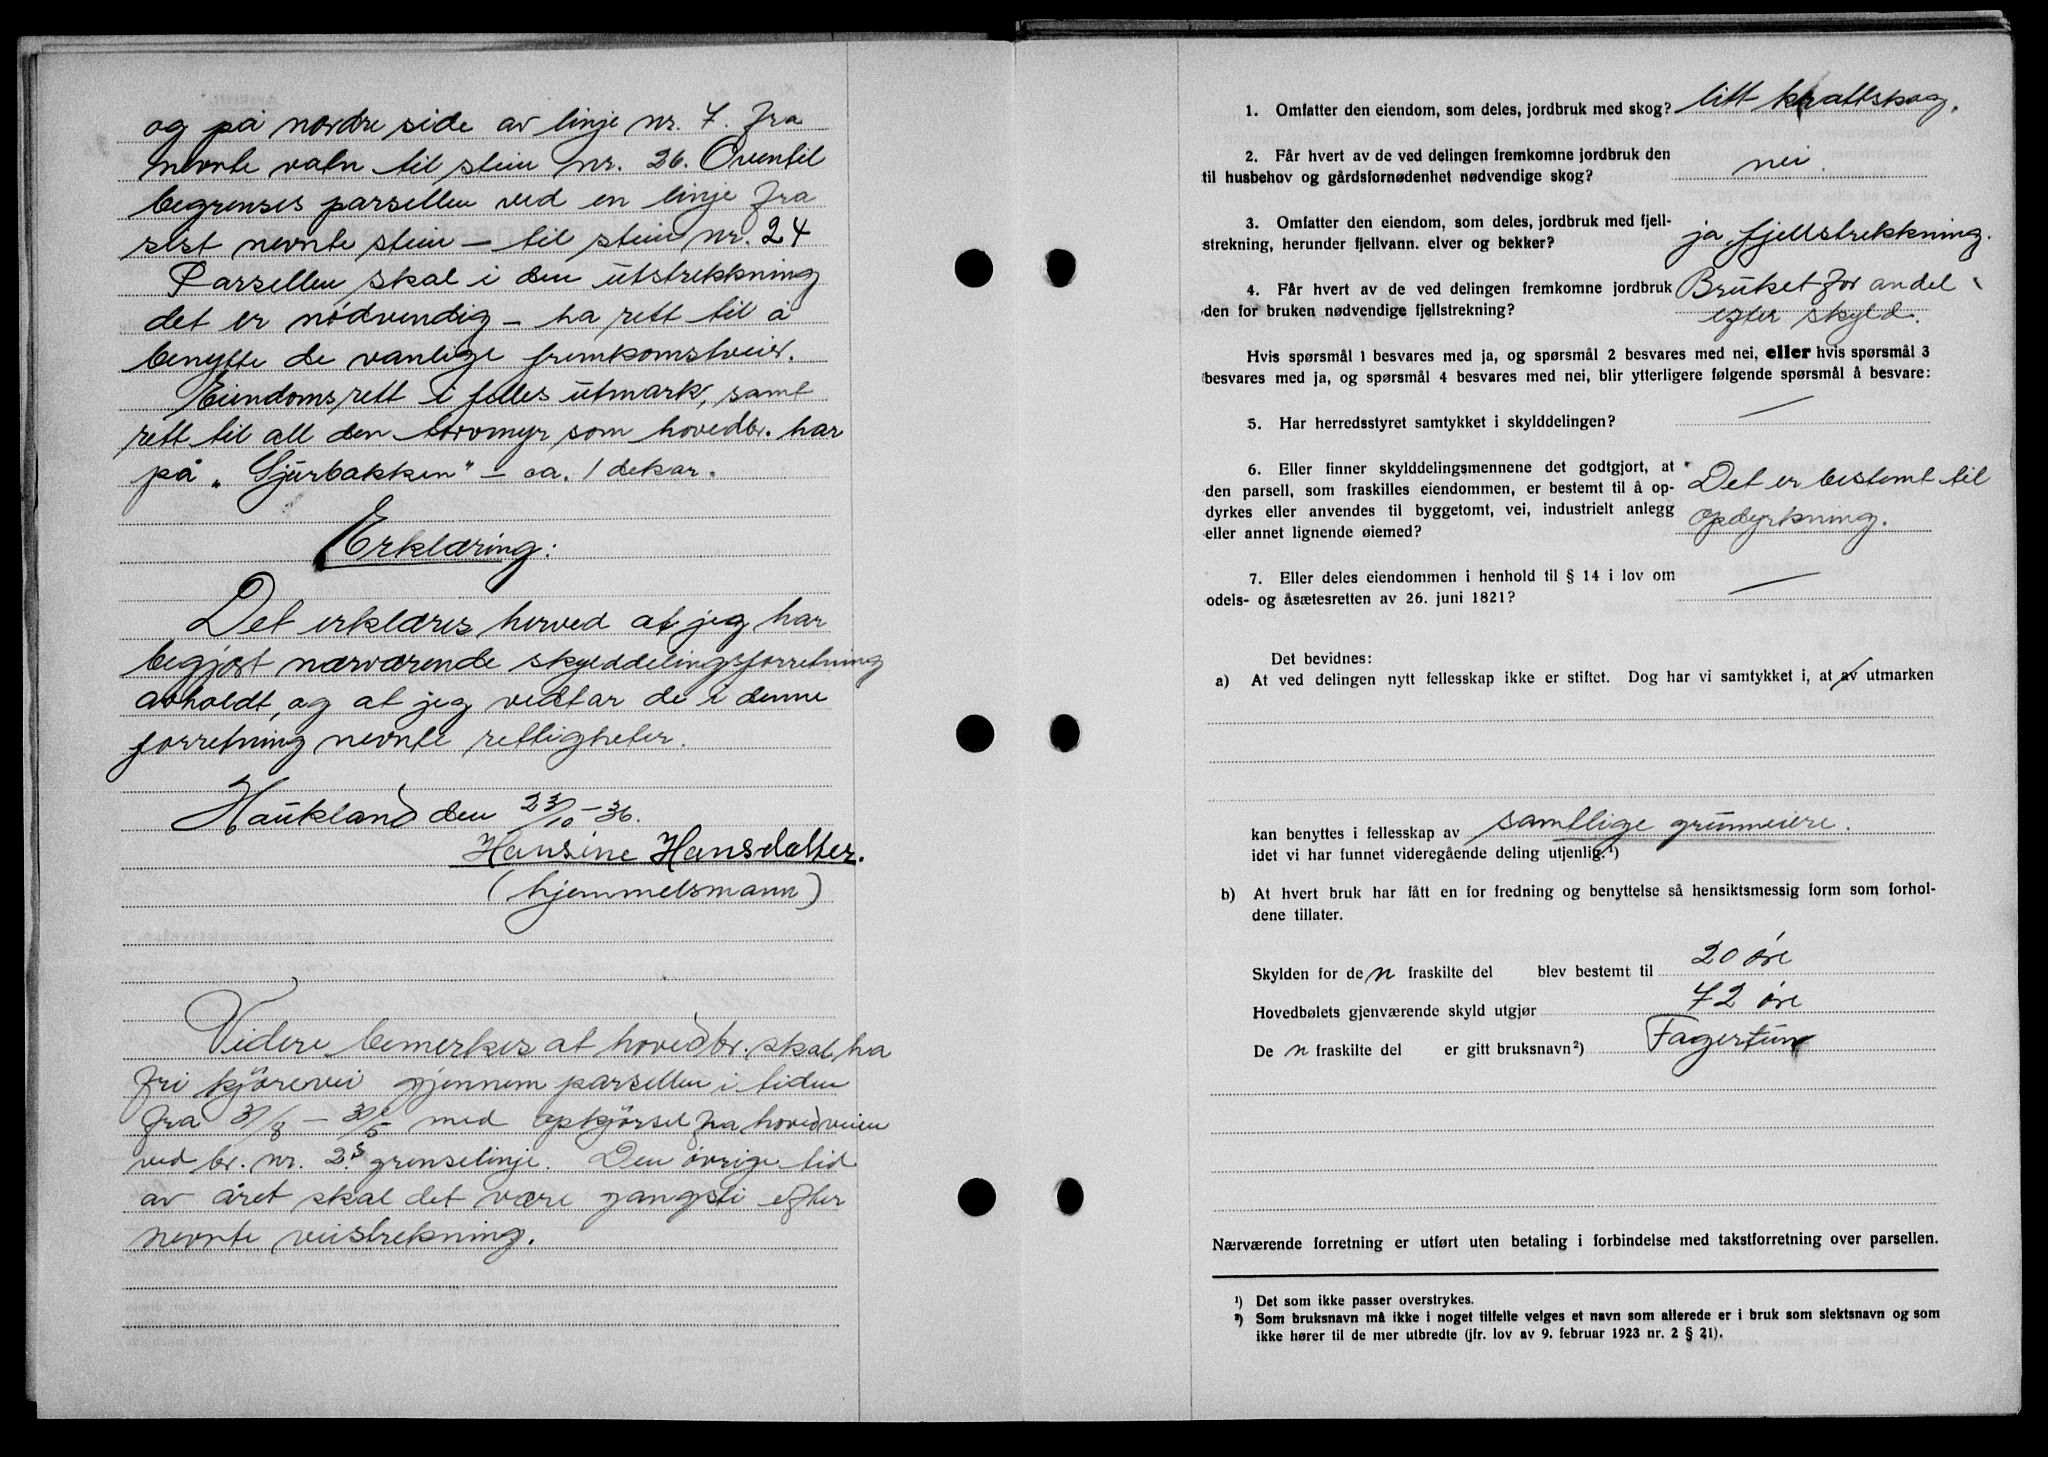 og på nordre side av linje nr. 7. fra
nevnte vatn til stein nr. 26. Oventil
begrenses parsellen ved en linje fra
sist nevnte stein – til stein nr. 24
Parsellen skal i den utstrekkning
det er nødvendig – ha rett til å
benytte de vanlige fremkomstveier.
Eiendomsrett i felles utmark, samt
rett til all den torvmyr, som hovedbr. har
på „Sjurbakken" – ca. 1 dekar.
Erklæring:
Det erklæres herved at jeg har
begjært nærværende skylddelingsforretning
avholdt, og at jeg vedtar de i denne
forretning nevnte rettigheter.
Haukland den 23/10 – 36.
Hansine Hansdatter.
(hjemmelsmann)
Videre bemerkes at hovedbr. skal ha
fri kjörevei gjennem parsellen i tiden
fra 31/8 – 30/5 med opkjörsel fra hovedveien
ved br. nr. 2s grenselinje. Den övrige tid
av året skal det være gangsti efter
nevnte veistrekning.
1. Omfatter den eiendom, som deles, jordbruk med skog? litt krattskog.
2. Får hvert av de ved delingen fremkomne jordbruk den
til husbehov og gårdsfornødenhet nødvendige skog? nei.
3. Omfatter den eiendom, som deles, jordbruk med fjell-
strekning, herunder fjellvann. elver og bekker? ja, fjellstrekkning.
4. Får hvert av de ved delingen fremkomne jordbruk Bruket for andel
den for bruken nødvendige fjellstrekning? efter skyld.
Hvis spørsmål 1 besvares med ja, og spørsmål 2 besvares med nei, eller hvis spørsmål 3
besvares med ja, og spørsmål 4 besvares med nei, blir ytterligere følgende spørsmål å besvare:
5. Har herredsstyret samtykket i skylddelingen? —
6. Eller finner skylddelingsmennene det godtgjort, at
den parsell, som fraskilles eiendommen, er bestemt til å op- Det er bestemt til
dyrkes eller anvendes til byggetomt, vei, industrielt anlegg opdyrkning.
eller annet lignende øiemed?
7. Eller deles eiendommen i henhold til § 14 i lov om
odels- og åsætesretten av 26. juni 1821? —
Det bevidnes:
a) At ved delingen nytt fellesskap ikke er stiftet. Dog har vi samtykket i, at av utmarken
kan benyttes i fellesskap av samtlige grunneiere.
idet vi har funnet videregående deling utjenlig.¹)
b) At hvert bruk har fått en for fredning og benyttelse så hensiktsmessig form som forhol-
dene tillater.
Skylden for den fraskilte del blev bestemt til 20 öre
Hovedbølets gjenværende skyld utgjør 72 öre
Den fraskilte del er gitt bruksnavn²) Fagertun
Nærværende forretning er utført uten betaling i forbindelse med takstforretning over parsellen.
¹) Det som ikke passer overstrykes.
²) Som bruksnavn må ikke i noget tilfelle velges et navn som allerede er i bruk som slektsnavn og som
ikke hører til de mer utbredte (jfr. lov av 9. februar 1923 nr. 2 § 21).